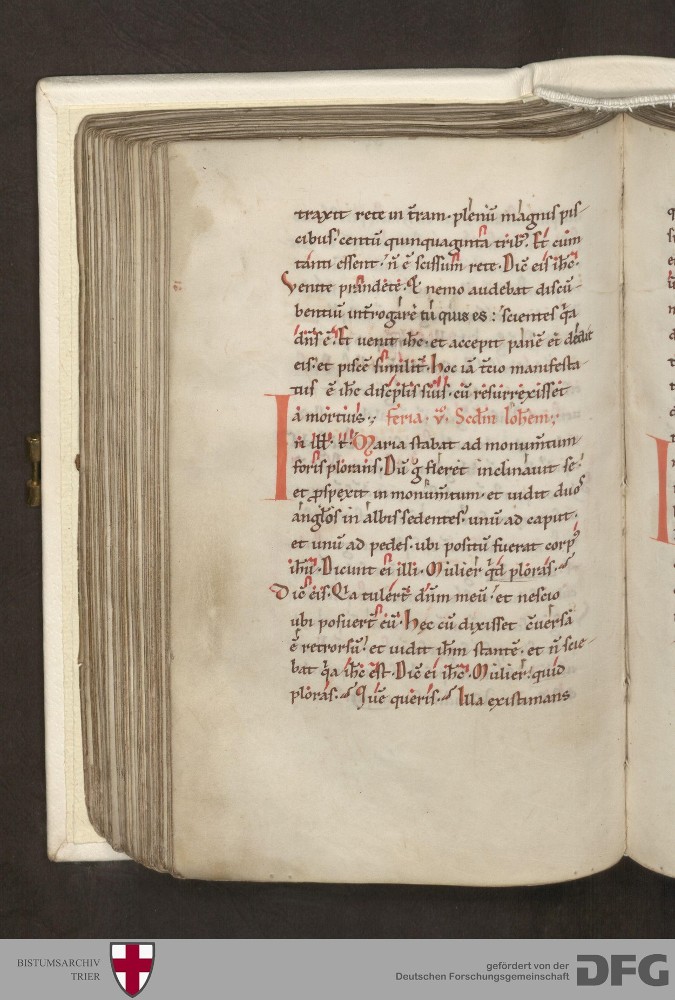 traxit rete in t̄ram· plenū magnis pis-
cibus· centū quinquaginta tribꝫ· Et cum
tanti essent· n̄ ē scissum rete· Dic̄ eis ihc̄·
Venite prandete· Et nemo audebat discū-
bentiū int̄rogare tu quis es: scientes q̄a
dn̄s ē· Et venit ihc̄· et accepit panē et dedit
eis· et piscē similit̄· Hoc iā t̄cio manifesta
tus ē ihc̄ discip̄lis suis· cū resurrexisset
a mortuis·; feria· v̄· Scdm̄ Ioh̄em·;
In ill̄· t̄· Maria stabat ad monum̄tum
foris plorans· Dū g̊ fleret inclinauit se·
et ꝓspexit in monum̄tum· et uidit duos
angl̄os in albis sedentes· unū ad caput·
et unū ad pedes· ubi positū fuerat corpꝰ
ihū· Dicunt ei illi· Mulier qd̄ ploras·
Dic̄ eis· Q̄a tuler̄t dn̄m meū· et nescio
ubi posuer̄t eū· Hęc cū dixisset c̄uersa
ē retrorsū· et uidit ihm̄ stantē· et n̄ scie-
bat q̄a ihc̄ est· Dic̄ ei ihc̄· Mulier· quid
ploras· Quē queris· Illa existimans
BISTUMSARCHIV
TRIER
gefördert von der
Deutschen Forschungsgemeinschaft
DFG